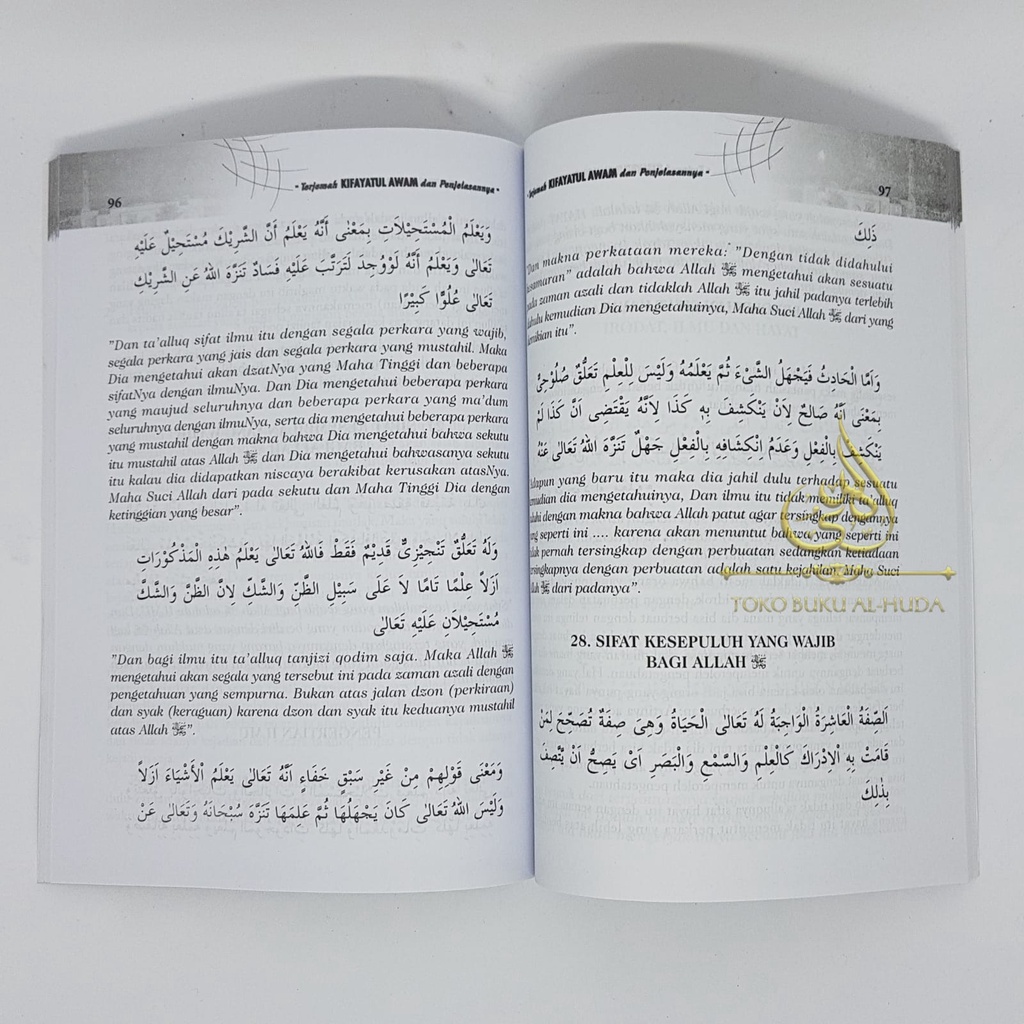 96
- Terjemah KIFAYATUL AWAM dan Penjelasannya -
وَيَعْلَمُ الْمُسْتَحِيْلَاتِ بِمَعْنٰى أَنَّهُ يَعْلَمُ أَنَّ الشَّرِيْكَ مُسْتَحِيْلٌ عَلَيْهِ
تَعَالٰى وَيَعْلَمُ أَنَّهُ لَوْوُجِدَ لَتَرَتَّبَ عَلَيْهِ فَسَادٌ تَنَزَّهَ اللهُ عَنِ الشَّرِيْكِ
تَعَالٰى عُلُوًّا كَبِيْرًا
"Dan ta'alluq sifat ilmu itu dengan segala perkara yang wajib,
segala perkara yang jais dan segala perkara yang mustahil. Maka
Dia mengetahui akan dzatNya yang Maha Tinggi dan beberapa
sifatNya dengan ilmuNya. Dan Dia mengetahui beberapa perkara
yang maujud seluruhnya dan beberapa perkara yang ma'dum
seluruhnya dengan ilmuNya, serta dia mengetahui beberapa perkara
yang mustahil dengan makna bahwa Dia mengetahui bahwa sekutu
itu mustahil atas Allah ﷻ dan Dia mengetahui bahwasanya sekutu
itu kalau dia didapatkan niscaya berakibat kerusakan atasNya.
Maha Suci Allah dari pada sekutu dan Maha Tinggi Dia dengan
ketinggian yang besar".
وَلَهُ تَعَلُّقٌ تَنْجِيْزِىٌّ قَدِيْمٌ فَقَطْ فَاللهُ تَعَالٰى يَعْلَمُ هٰذِهِ الْمَذْكُوْرَاتِ
أَزَلًا عِلْمًا تَامًّا لَا عَلَى سَبِيْلِ الظَّنِّ وَالشَّكِّ لِاَنَّ الظَّنَّ وَالشَّكَّ
مُسْتَحِيْلَانِ عَلَيْهِ تَعَالٰى
"Dan bagi ilmu itu ta'alluq tanjizi qodim saja. Maka Allah ﷻ
mengetahui akan segala yang tersebut ini pada zaman azali dengan
pengetahuan yang sempurna. Bukan atas jalan dzon (perkiraan)
dan syak (keraguan) karena dzon dan syak itu keduanya mustahil
atas Allah ﷻ".
وَمَعْنٰى قَوْلِهِمْ مِنْ غَيْرِ سَبْقِ خَفَاءٍ أَنَّهُ تَعَالٰى يَعْلَمُ الْأَشْيَاءَ أَزَلًا
وَلَيْسَ اللهُ تَعَالٰى كَانَ يَجْهَلُهَا ثُمَّ عَلِمَهَا تَنَزَّهَ سُبْحَانَهُ وَتَعَالٰى عَنْ
Terjemah KIFAYATUL AWAM dan Penjelasannya -
97
ذٰلِكَ
"Dan makna perkataan mereka: "Dengan tidak didahului
kesamaran" adalah bahwa Allah ﷻ mengetahui akan sesuatu
pada zaman azali dan tidaklah Allah ﷻ itu jahil padanya terlebih
dahulu kemudian Dia mengetahuinya, Maha Suci Allah ﷻ dari yang
demikian itu".
وَاَمَّا الْحَادِثُ فَيَجْهَلُ الشَّىْءَ ثُمَّ يَعْلَمُهُ وَلَيْسَ لِلْعِلْمِ تَعَلُّقٌ صُلُوْحِيٌّ
بِمَعْنٰى اَنَّهُ صَالِحٌ لِاَنْ يَنْكَشِفَ بِهِ كَذَا لِاَنَّهُ يَقْتَضِى اَنَّ كَذَا لَمْ
يَنْكَشِفْ بِالْفِعْلِ وَعَدَمُ اِنْكِشَافِهِ بِالْفِعْلِ جَهْلٌ تَنَزَّهَ اللهُ تَعَالٰى عَنْهُ
Adapun yang baru itu maka dia jahil dulu terhadap sesuatu
kemudian dia mengetahuinya, Dan ilmu itu tidak memiliki ta'alluq
dengan makna bahwa Allah patut agar tersingkap dengannya
yang seperti ini .... karena akan menuntut bahwa yang seperti ini
pernah tersingkap dengan perbuatan sedangkan ketiadaan
tersingkapnya dengan perbuatan adalah satu kejahilan, Maha Suci
Allah ﷻ dari padanya".
TOKO BUKU AL-HUDA
28. SIFAT KESEPULUH YANG WAJIB
BAGI ALLAH ﷻ
اَلصِّفَةُ الْعَاشِرَةُ الْوَاجِبَةُ لَهُ تَعَالٰى الْحَيَاةُ وَهِىَ صِفَةٌ تُصَحِّحُ لِمَنْ
قَامَتْ بِهِ الْاِدْرَاكَ كَالْعِلْمِ وَالسَّمْعِ وَالْبَصَرِ اَىْ يَصِحُّ اَنْ يَتَّصِفَ
بِذٰلِكَ